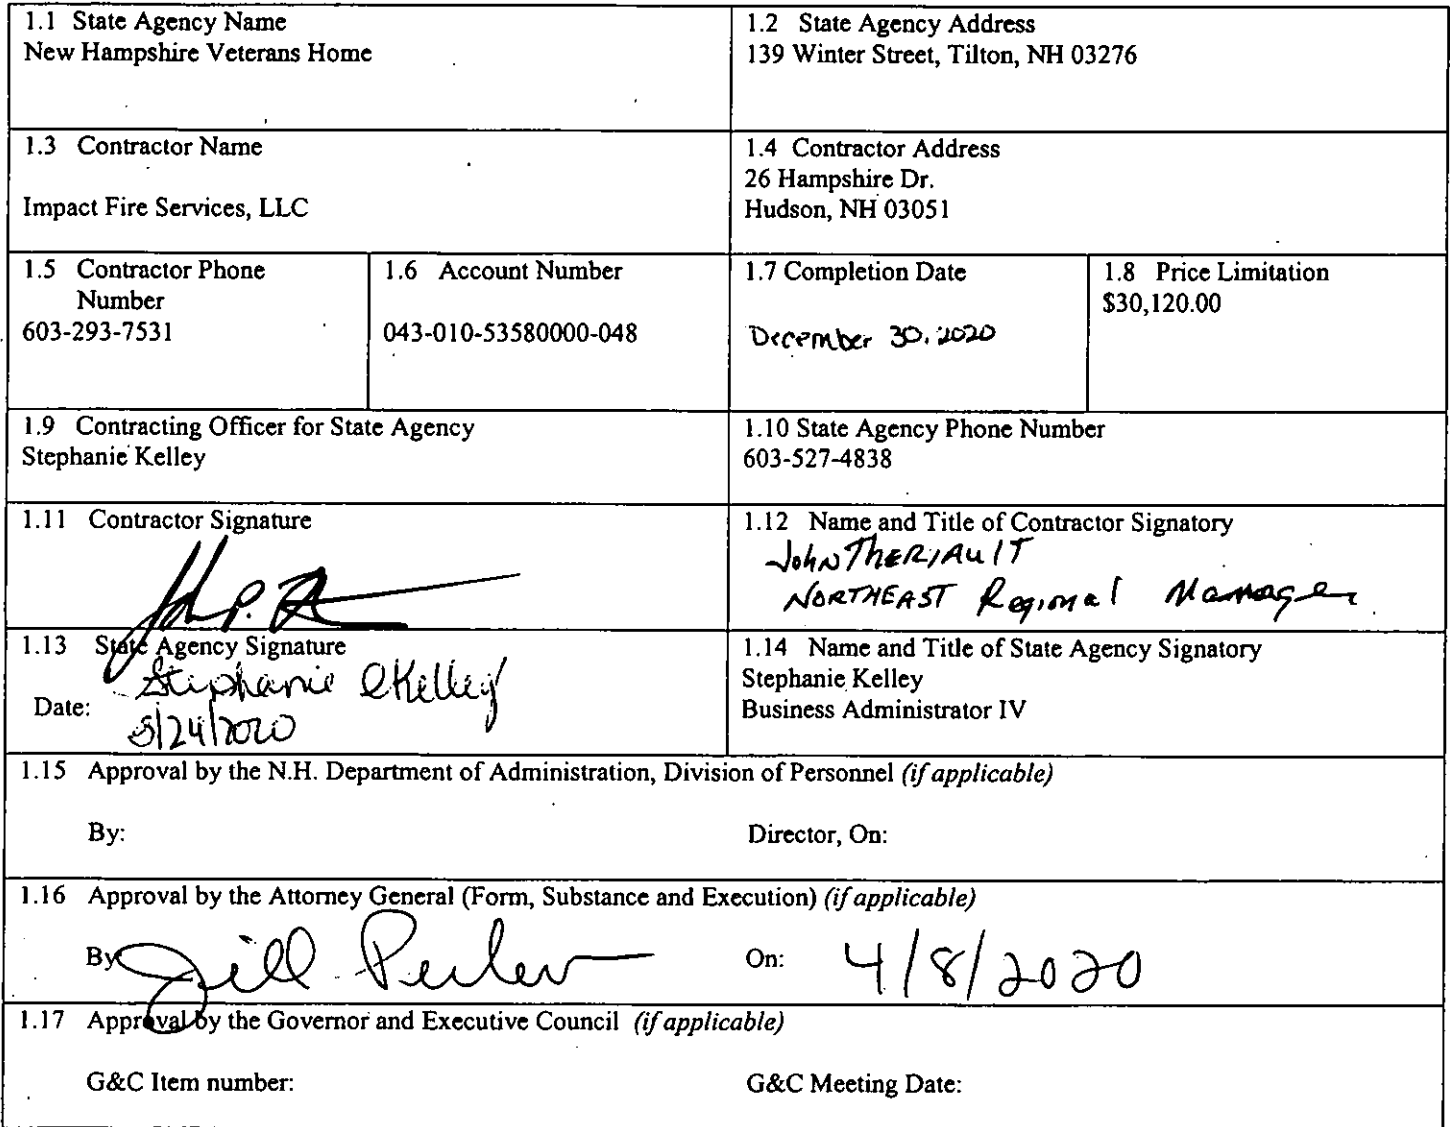 1.1 State Agency Name
New Hampshire Veterans Home
1.2 State Agency Address
139 Winter Street, Tilton, NH 03276
1.3 Contractor Name
Impact Fire Services, LLC
1.4 Contractor Address
26 Hampshire Dr.
Hudson, NH 03051
1.5 Contractor Phone
Number
603-293-7531
1.6 Account Number
043-010-53580000-048
1.7 Completion Date
December 30, 2020
1.8 Price Limitation
$30,120.00
1.9 Contracting Officer for State Agency
Stephanie Kelley
1.10 State Agency Phone Number
603-527-4838
1.11 Contractor Signature
1.12 Name and Title of Contractor Signatory
John THERIAULT
NORTHEAST Regional Manager
1.13 State Agency Signature
Stephanie Kelley
Date:
1.14 Name and Title of State Agency Signatory
Stephanie Kelley
Business Administrator IV
1.15 Approval by the N.H. Department of Administration, Division of Personnel (if applicable)
By: Director, On:
1.16 Approval by the Attorney General (Form, Substance and Execution) (if applicable)
By Jill On: 4/8/2020
1.17 Approval by the Governor and Executive Council (if applicable)
G&C Item number: G&C Meeting Date: